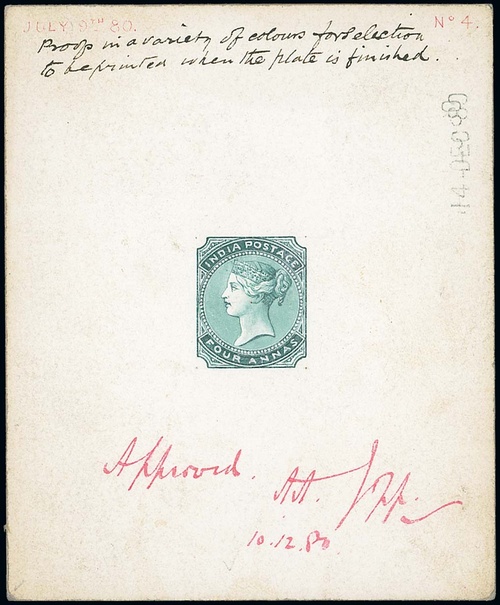 JULY 19TH 80.
No 4.
Proofs in a variety of colours for selection
to be printed when the plate is finished.
14 DEC 80
INDIA POSTAGE
FOUR ANNAS
Approved.
10.12.80